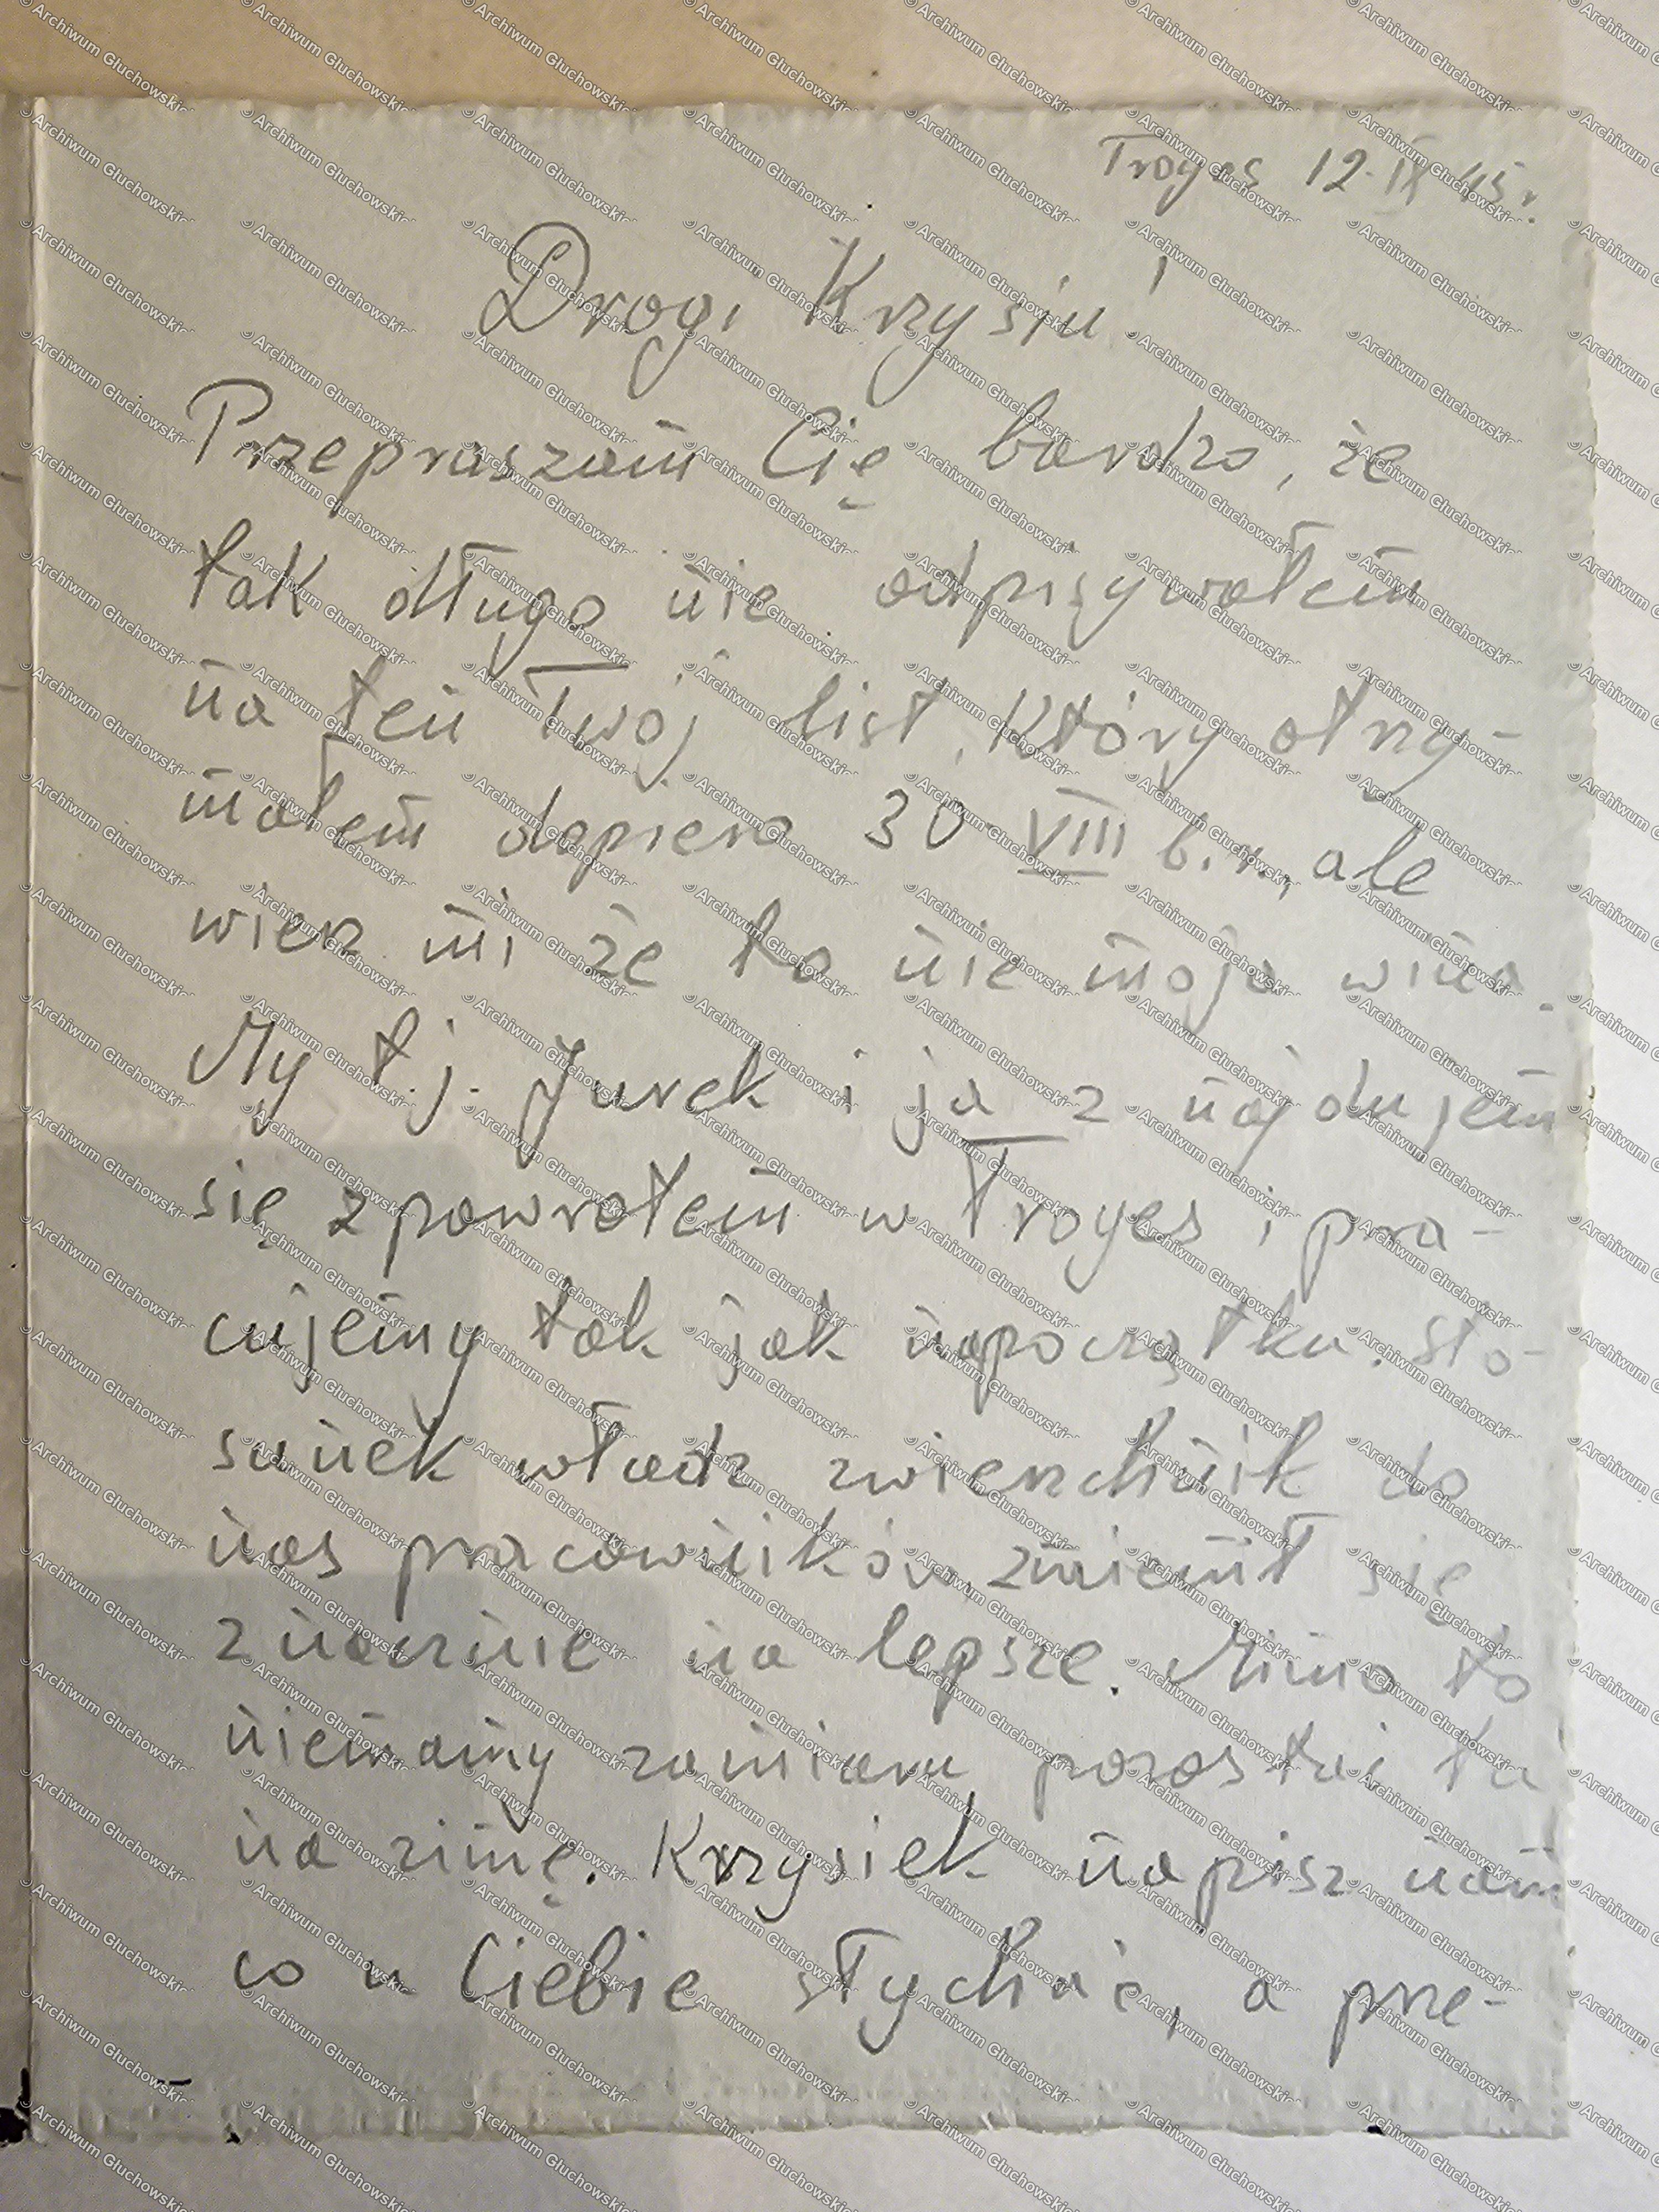 Troyes 12.IX 45 r.
Drogi Krzysiu!
Przepraszam Cię bardzo, że
tak długo nie odpisywałem
na ten Twój list, który otrzy-
małem dopiero 30 VIII b.r., ale
wierz mi że to nie moja wina.
My t.j. Jurek i ja znajdujem
się zpowrotem w Troyes i pra-
cujemy tak jak napoczątku. Sto-
sunek władz zwierzchnik do
nas pracowników zmienił się
znacznie na lepsze. Mimo to
niemamy zamiaru pozostać tu
na zimę. Krzysiek napisz nam
co u Ciebie słychać, a prze-
© Archiwum Głuchowskich